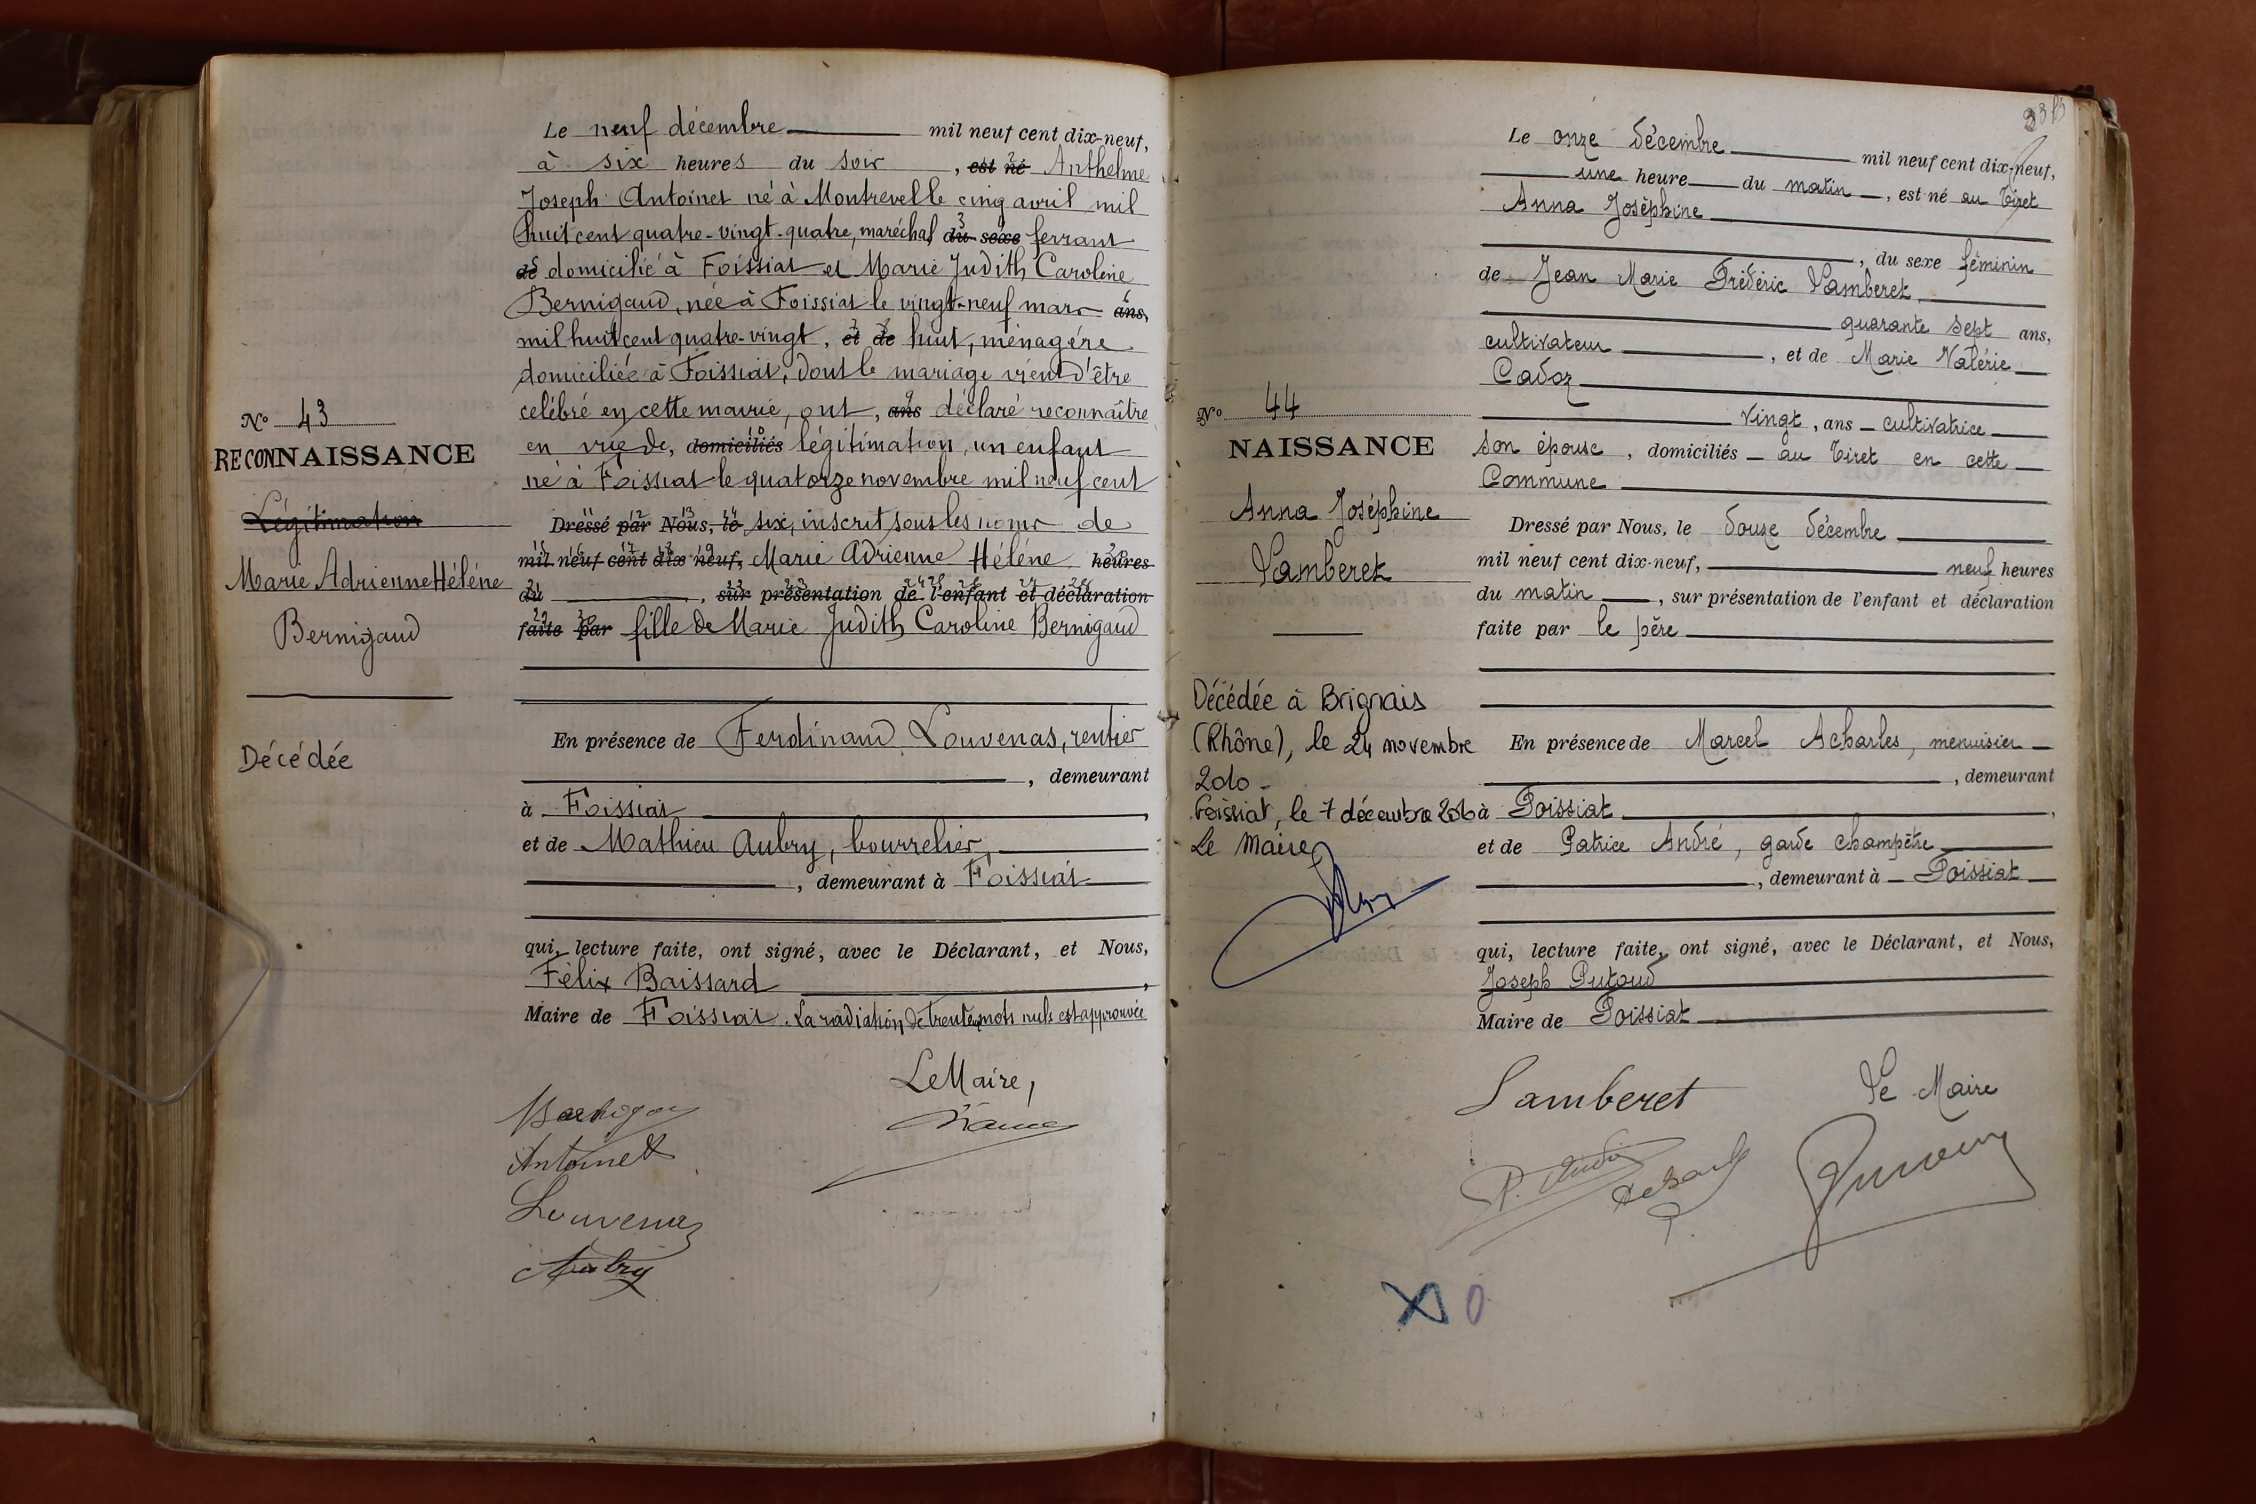 Le neuf décembre mil neuf cent dix-neuf,
à six heures du soir, est né Anthelme
Joseph Antoinet né à Montrevel le cinq avril mil
huit cent quatre-vingt-quatre, maréchal du sexe ferrant
de domicilié à Foissiat et Marie Judith Caroline
Bernigaud, née à Foissiat le vingt-neuf mars ans,
mil huit cent quatre-vingt, et de huit, ménagère
domiciliée à Foissiat, dont le mariage vient d'être
célébré en cette mairie, ont, ans déclaré reconnaître
en vue de, domiciliés légitimation, un enfant
né à Foissiat le quatorze novembre mil neuf cent
Dressé par Nous, le six, inscrit sous les noms de
mil neuf cent dix neuf, Marie Adrienne Hélène heures
du , sur présentation de l'enfant et déclaration
faite par fille de Marie Judith Caroline Bernigaud
En présence de Ferdinand Louvenas, rentier
, demeurant
à Foissiat,
et de Mathieu Aubry, bourrelier,
, demeurant à Foissiat
qui, lecture faite, ont signé, avec le Déclarant, et Nous,
Félix Baissard,
Maire de Foissiat. La radiation de trente mots nuls est approuvée
Le Maire,
Antoinet
Louvenas
Aubry
N° 43
RECONNAISSANCE
Légitimation
Marie Adrienne Hélène
Bernigaud
Décédée
Le onze décembre mil neuf cent dix-neuf,
une heure du matin, est né au Tiret
Anna Joséphine
, du sexe féminin
de Jean Marie Frédéric Lamberet,
quarante sept ans,
cultivateur, et de Marie Valérie
Cadoz
vingt, ans cultivatrice
son épouse, domiciliés au Tiret en cette
Commune
Dressé par Nous, le douze décembre
mil neuf cent dix-neuf, neuf heures
du matin, sur présentation de l'enfant et déclaration
faite par le père
En présence de Marcel Acharles, menuisier
, demeurant
à Foissiat,
et de Patrice André, garde champêtre
, demeurant à Foissiat
qui, lecture faite, ont signé, avec le Déclarant, et Nous,
Joseph Dutoud
Maire de Foissiat
Lamberet
Le Maire
P. André
N° 44
NAISSANCE
Anna Joséphine
Lamberet
Décédée à Brignais
(Rhône), le 24 novembre
2010
Foissiat, le 7 décembre 2010
Le Maire